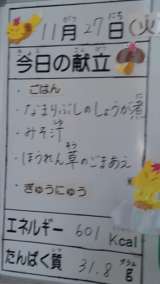 11月27日(火
今日の献立
・ごはん
・なまりぶしのしょうが煮
・みそ汁
・ほうれん草のごまあえ
・ぎゅうにゅう
エネルギー 601 Kcal
たんぱく質 31.8 g